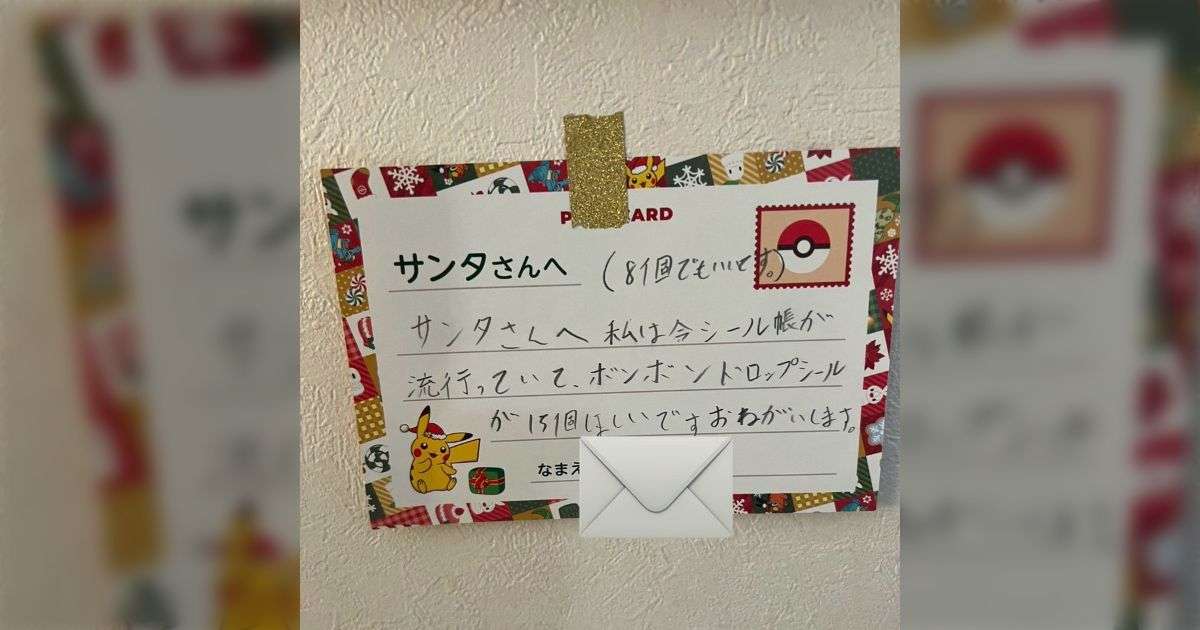 サンタさんへ (8個でもいいです。)
サンタさんへ 私は今シール帳が
流行っていて、ボンボンドロップシール
が15個ほしいですおねがいします。
なまえ